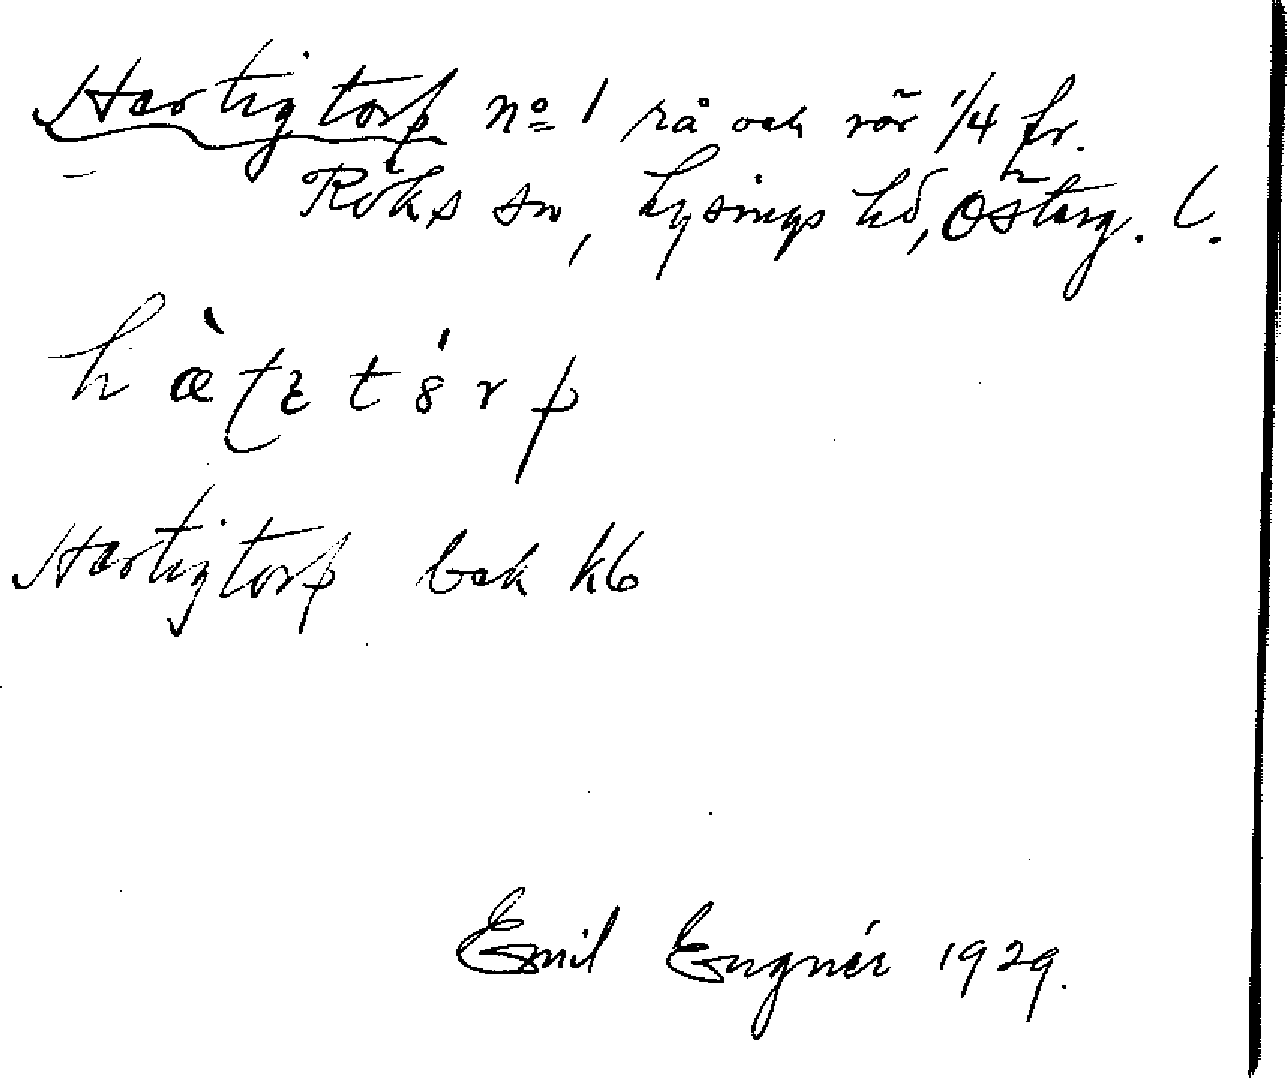 Hartigtorp nº 1 rå och rör 1/4 fr.
Röks sn, Lysings hd, Österg. l.
hàʈɛtórp
Hartigtorp bok kb
Emil Engnér 1929.